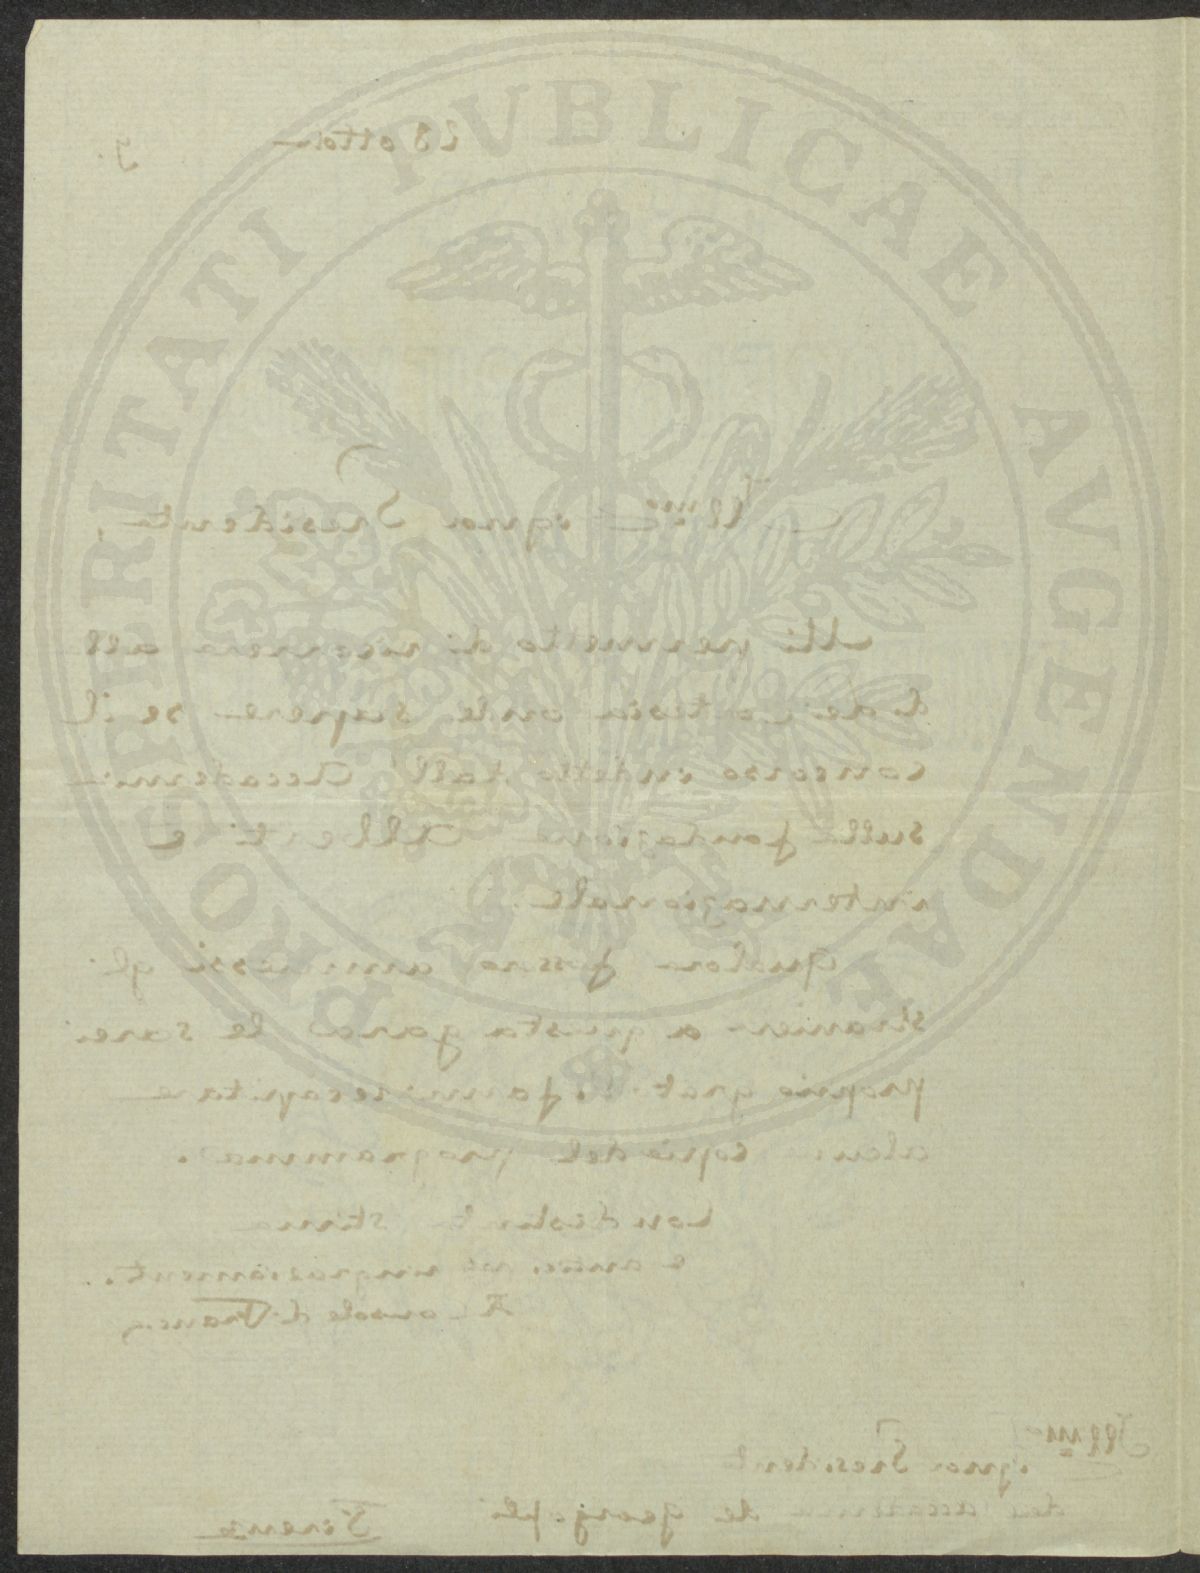 PROSPERITATI PUBLICAE AUGENDAE
28 ottob
9.
Ill.mo Signor Presidente,
Mi permetto di ricorrere all
di Lei cortesia onde sapere se il
concorso indetto dall' Accademia
sulla fondazione Alberti è
internazionale.
Qualora fossero ammessi gli
stranieri a questa gara le sarei
proprio grato di farmi recapitare
alcune copie del programma.
Con distinta stima
e anticipati ringraziamenti.
Il Console di Francia
Ill.mo
Signor Presidente
dell' Accademia dei georgofili
Firenze